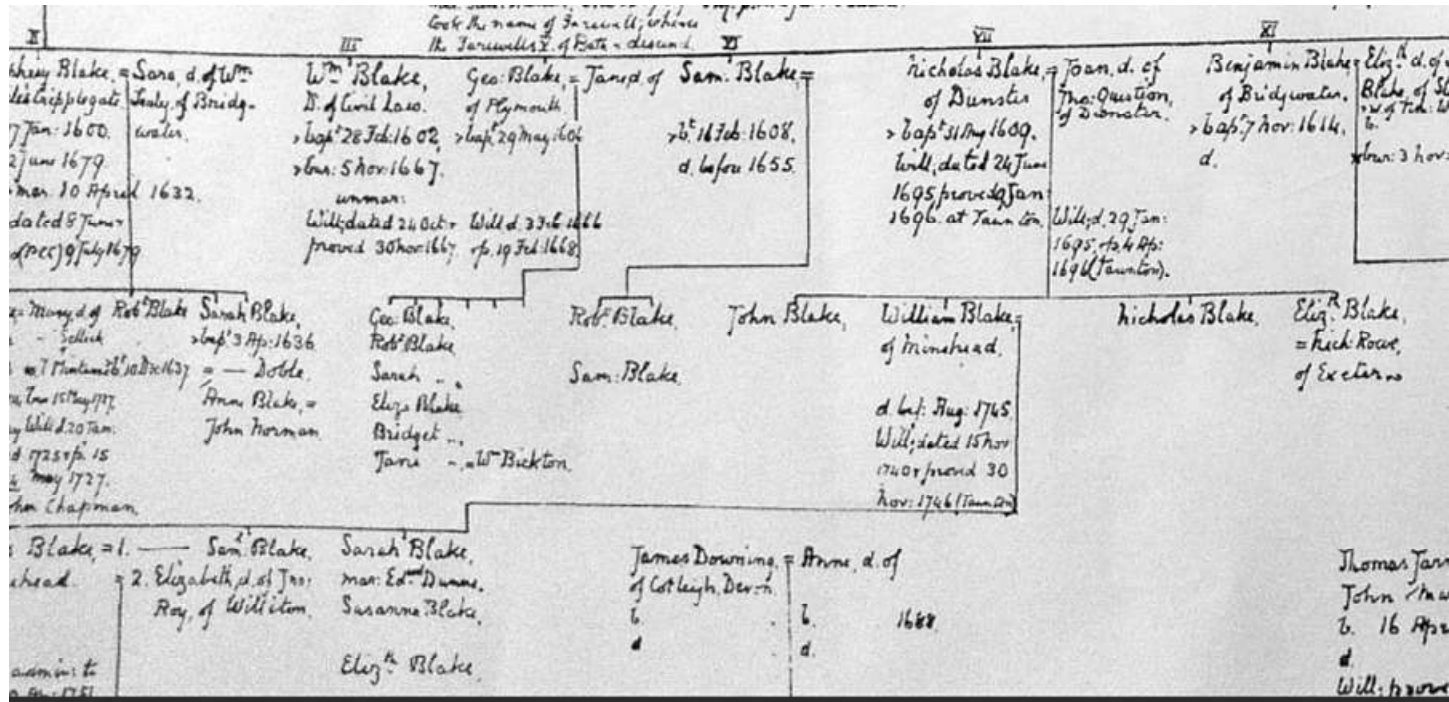 took the name of Farewell; whence
the Farewells of Bate - descend.
II
III
VI
VII
XI
Blake, = Sara, d. of Wm
Cripplegate. Sealy, of Bridg-
water.
Jan: 1600.
2 June 1679.
mar. 10 April 1632.
dated 8 June
(PCC) 9 July 1679
Wm Blake,
D. of Civil Law.
bapt 28 Feb: 1602,
bur: 5 Nov: 1667.
unmar:
Will; dated 24 Oct &
proved 30 Nov: 1667
Geo: Blake, = Jane, d. of
of Plymouth
bapt 29 May 1606
Will d. 3 Feb: 1666
& p. 19 Feb: 1668.
Sam: Blake, =
bt 16 Feb: 1608.
d. before 1655.
Nicholas Blake, = Joan, d. of
of Dunster
Tho: Question,
of Dunster.
bapt 31 Aug 1609.
Will; dated 24 June
1695, proved 29 Jan:
1696. at Taunton
Will; d. 29 Jan:
1695, & p. 4 Ap:
1696 (Taunton).
Benjamin Blake = Elizth d. of
of Bridgwater.
Blake, of
bapt 7 Nov: 1614.
d.
b.
bur: 3 Nov:
= Mary, d. of
Sellick
Robt Blake
Sarah Blake,
bapt 3 Ap: 1636
bt 10 Dec 1637
= — Doble.
15 May 1727.
Anne Blake, =
Will d. 20 Jan:
John Norman
1725 & p. 15
May 1727.
John Chapman
Geo: Blake,
Robt Blake
Sarah "
Eliza Blake
Bridget "
Jane " = Wm Bickton
Robt Blake,
Sam: Blake.
John Blake,
William Blake, =
of Minehead.
d. bef: Aug: 1745.
Will; dated 15 Nov
1740 & proved 30
Nov: 1746 (Taunton)
Nicholas Blake,
Elizth Blake,
= Rich: Rowe,
of Exeter
Blake, = 1. —
= 2. Elizabeth, d. of Jno:
Roy, of Williton.
Saml Blake,
Sarah Blake,
mar: Edmd Dunne.
Susanna Blake,
Elizth Blake
James Downing = Anne, d. of
of Cotleigh, Devon
b.
d
b. 1688.
d.
Thomas
John
b. 16 Apr
d.
Will: prove
admin: to
1751